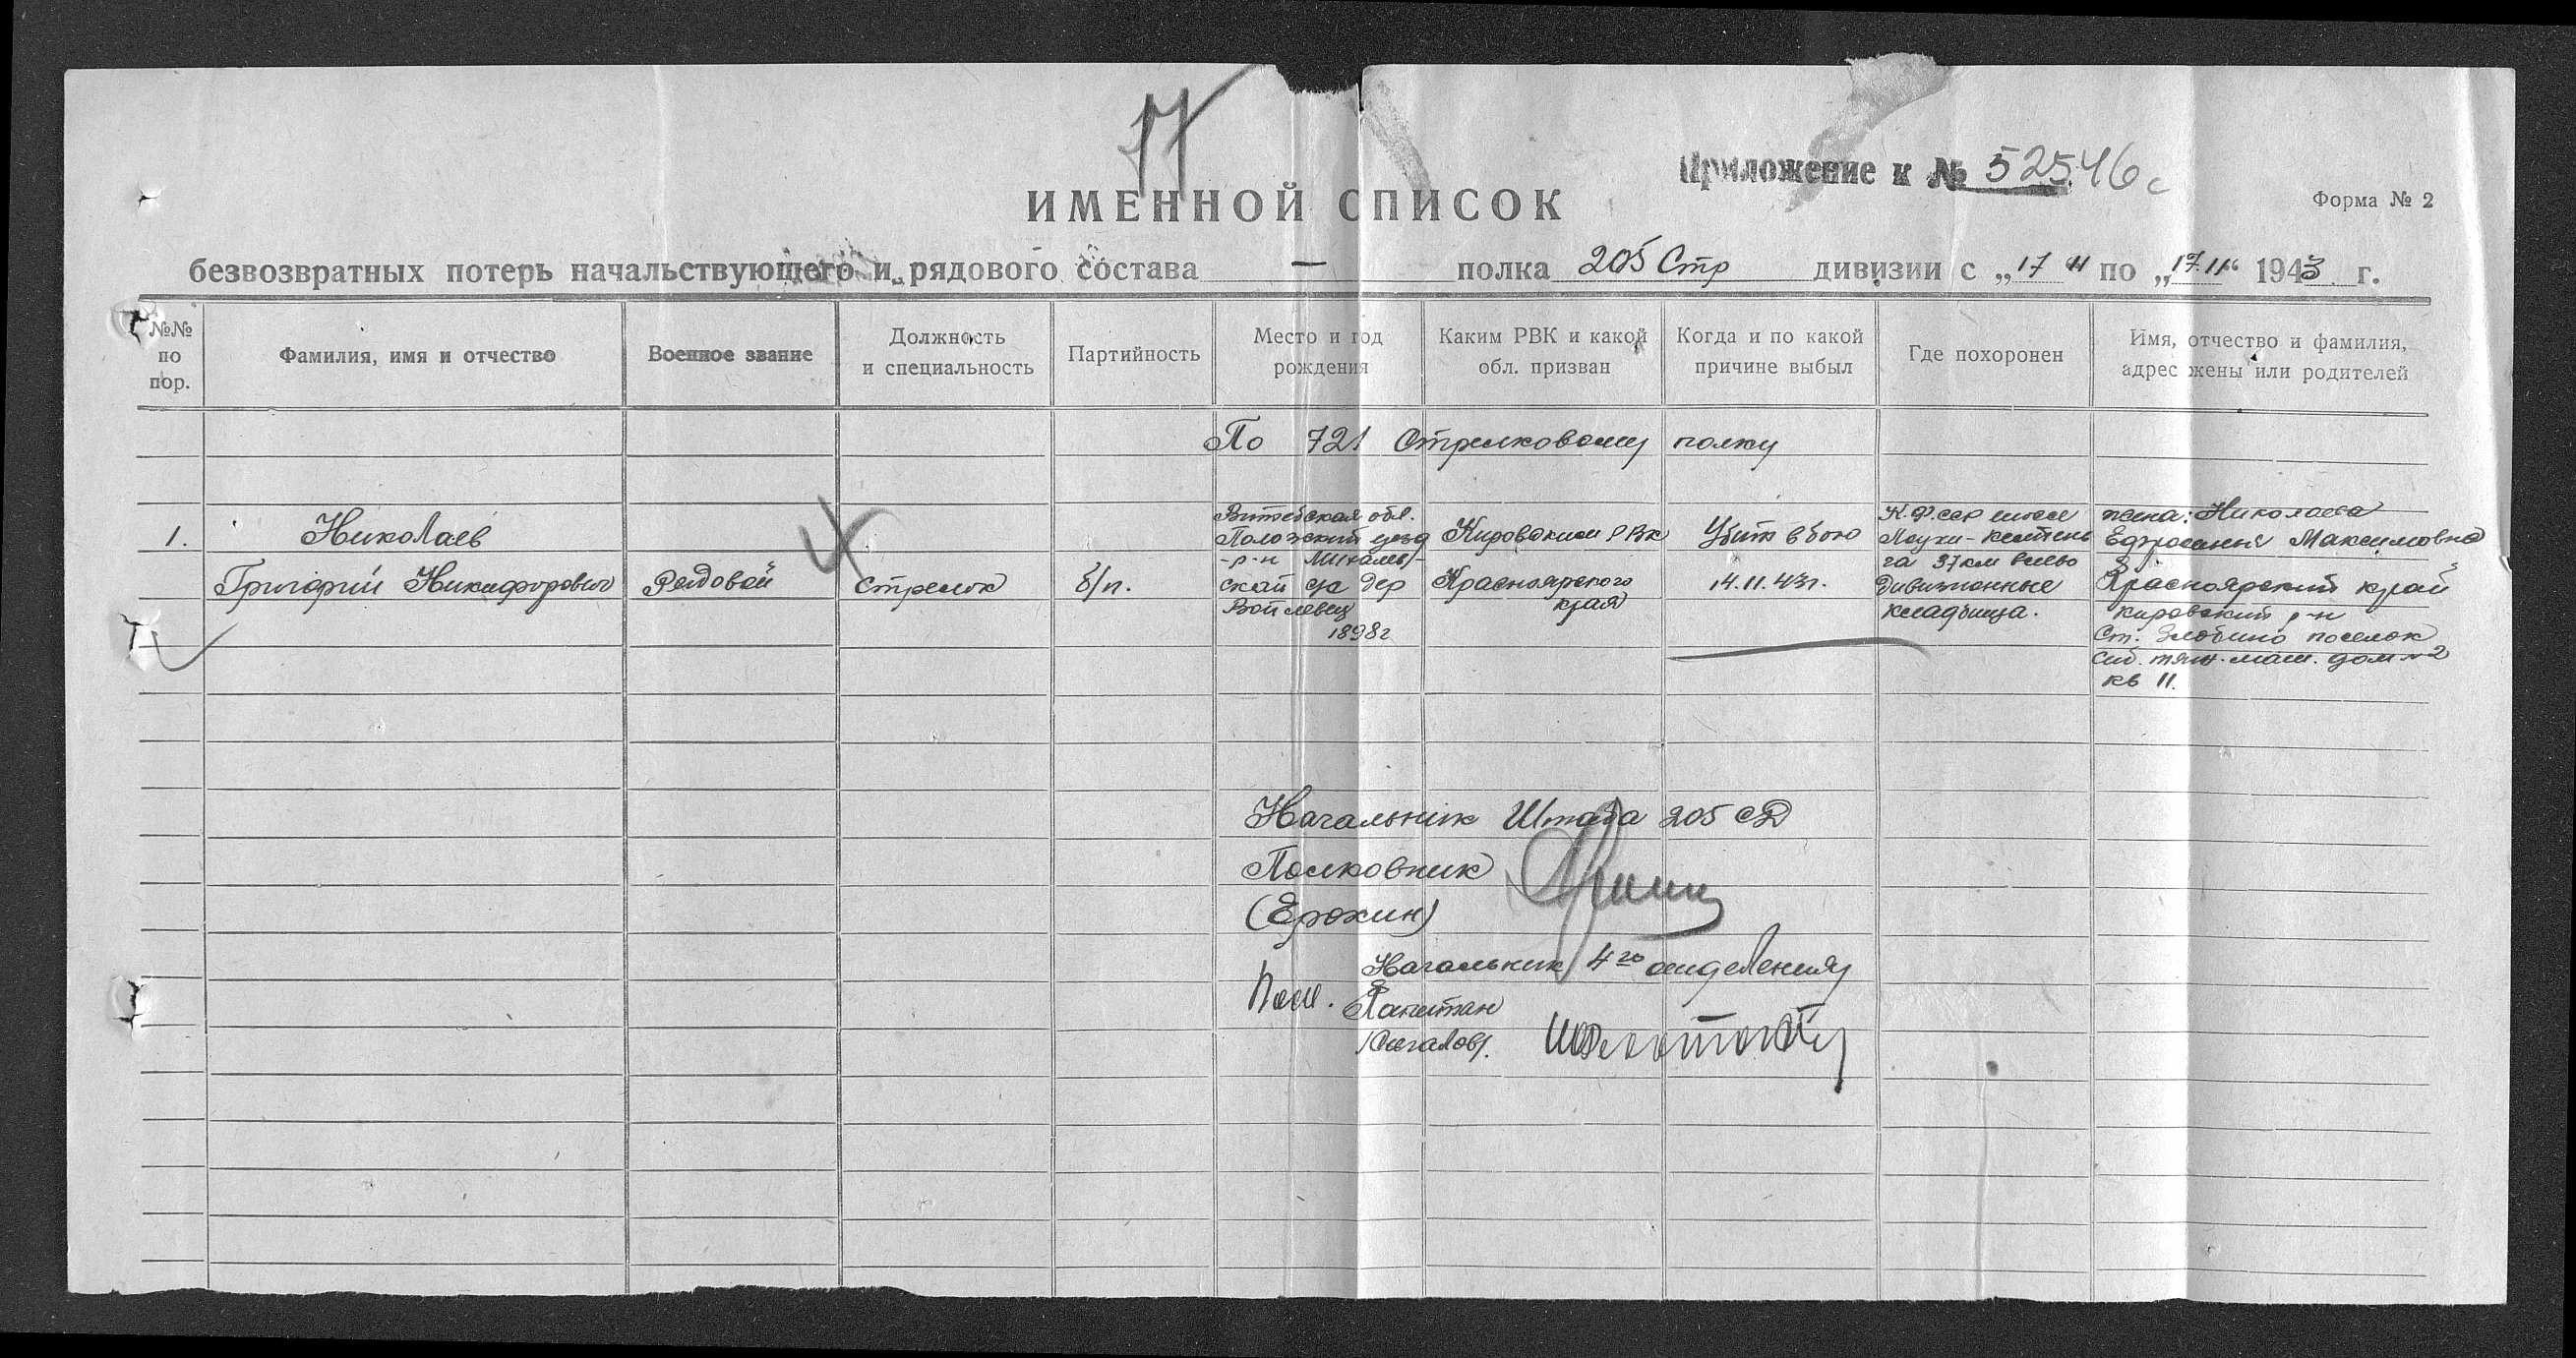 17
Приложение к № 52546с
Форма № 2
ИМЕННОЙ СПИСОК
безвозвратных потерь начальствующего и рядового состава — полка 205 Стр дивизии с „17 " по „17.11“ 1943 г.
№№ по пор.
Фамилия, имя и отчество
Военное звание
Должность и специальность
Партийность
Место и год рождения
Каким РВК и какой обл. призван
Когда и по какой причине выбыл
Где похоронен
Имя, отчество и фамилия, адрес жены или родителей
По 721 Стрелковому полку
1.
Николаев
Григорий Никифорович
Рядовой
Стрелок
б/п.
Витебская обл.
Полоцкий уезд
-р-н
дер
1898г
Кировским РВК
Красноярского
края
Убит в бою
14.11.43г.
К.Ф.сср шоссе
Лоухи-Кестень
га 37км
дивизионные
кладбища.
жена: Николаева
Ефросинья Максимовна
Красноярский край
Кировский р-н
Ст. Злобино поселок
Сиб. тяж. маш. дом №2
кв 11.
Начальник Штаба 205 СД
Полковник
(Ерохин)
Начальник 4го отделения
Пом.
Капитан